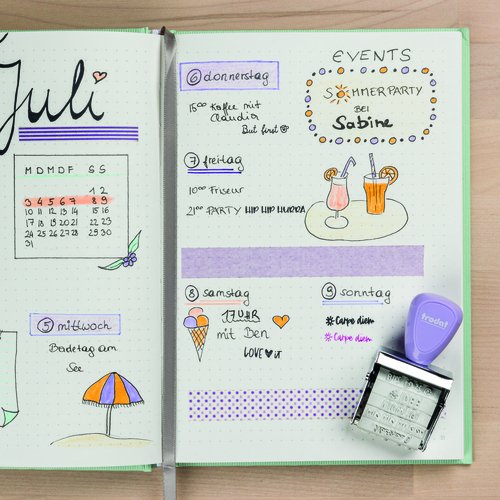 Juli
M D M D F S S
1 2
3 4 5 6 7 8 9
10 11 12 13 14 15 16
17 18 19 20 21 22 23
24 25 26 27 28 29 30
31
5 mittwoch
Badetag am
See
6 donnerstag
15⁰⁰ Kaffee mit
Claudia
But first
7 freitag
10⁰⁰ Friseur
21⁰⁰ PARTY HIP HIP HURRA
EVENTS
SOMMERPARTY
BEI
Sabine
8 samstag
17 UHR
mit Ben
LOVE it
9 sonntag
#Carpe diem
#Carpe diem
trodat